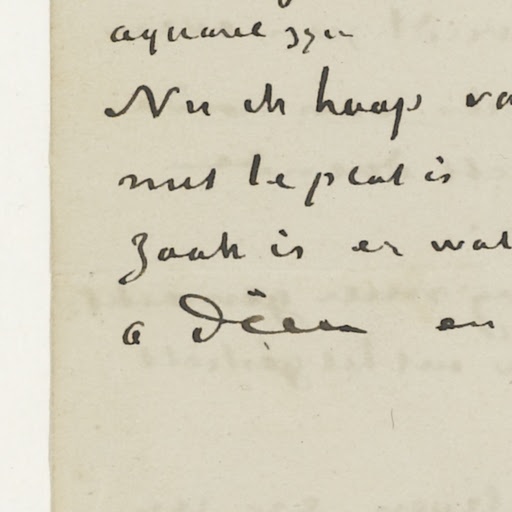 aquarel zyn
Nu ik hoop
niet te plat is
Zaak is er wat
a Dieu en